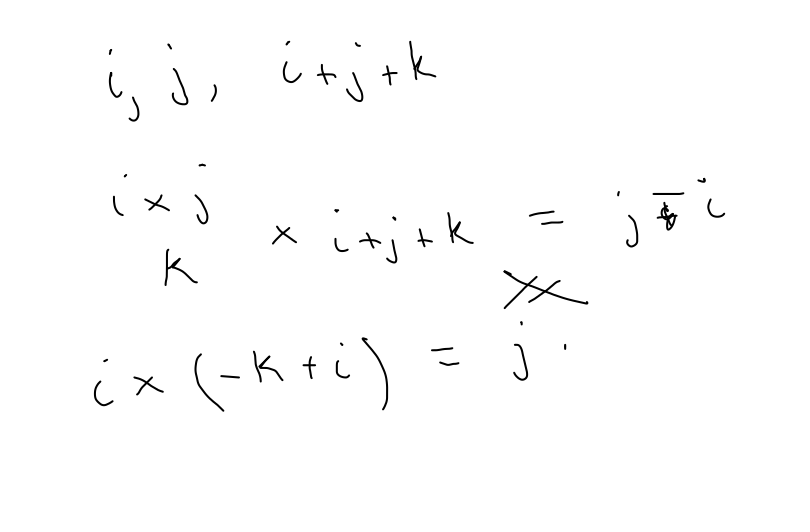 i, j, i+j+k
i × j × i+j+k = j - i
k
i × (-k + i) = j